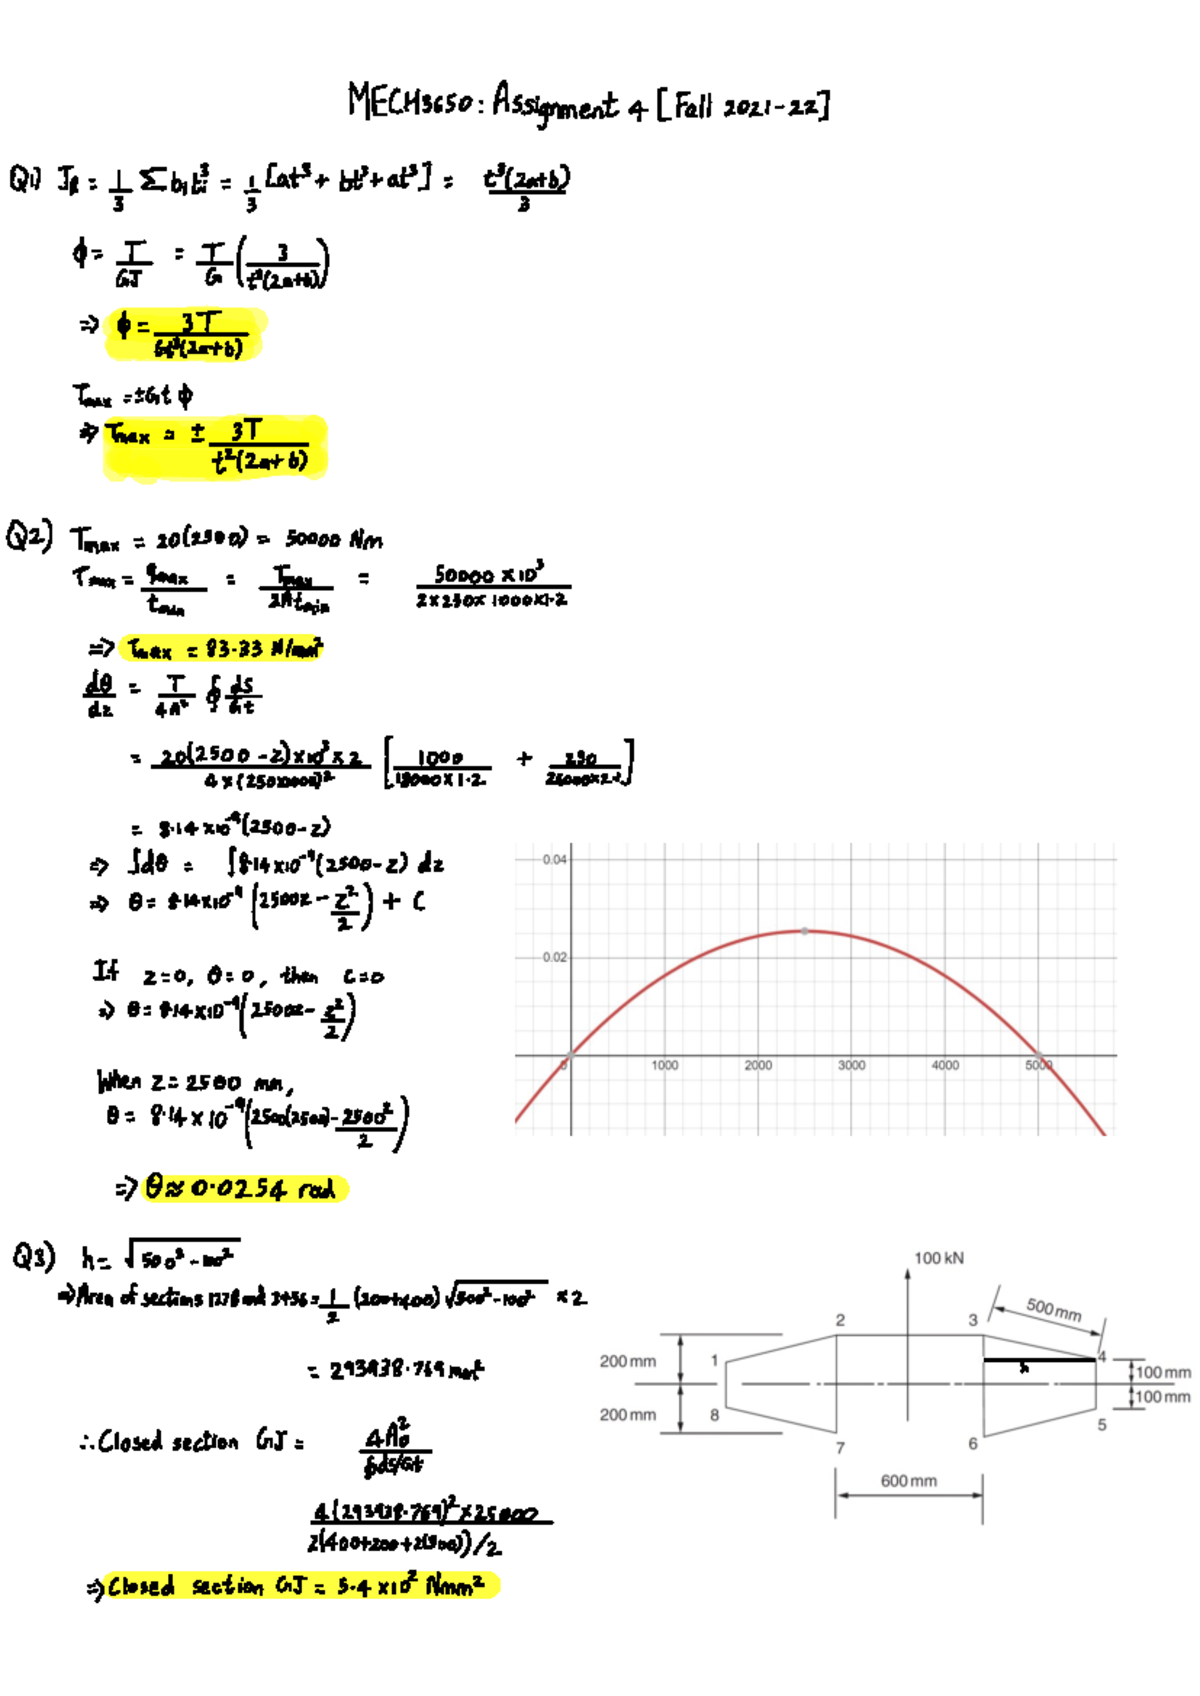 MECH3650: Assignment 4 [Fall 2021-22]
Q1) J_R = 1/3 Σ b_i t_i³ = 1/3 [at³ + bt³ + at³] = t³(2a+b)/3
ϕ = T/GJ = T/G (3/t³(2a+b))
⇒ ϕ = 3T/Gt³(2a+b)
τmax = ±Gt ϕ
⇒ τmax = ± 3T/t²(2a+b)
Q2) Tmax = 20(2500) = 50000 Nm
τmax = qmax/tmin = Tmax/2Atmin = 50000 × 10³/2×250×1000×1.2
⇒ τmax = 83.33 N/mm²
dθ/dz = T/4A² ∮ ds/Gt
= 20(2500-z)×10³×2/4×(250×1000)² [1000/18000×1.2 + 250/26000×2.1]
= 8.14×10⁻⁹(2500-z)
⇒ ∫dθ = ∫8.14×10⁻⁹(2500-z) dz
⇒ θ = 8.14×10⁻⁹ (2500z - z²/2) + C
If z=0, θ=0, then C=0
⇒ θ = 8.14×10⁻⁹ (2500z - z²/2)
When z = 2500 mm,
θ = 8.14 × 10⁻⁹ (2500(2500) - 2500²/2)
⇒ θ ≈ 0.0254 rad
0.04
0.02
0 1000 2000 3000 4000 5000
Q3) h = √500² - 100²
⇒ Area of sections 1278 and 3456 = 1/2 (200+400) √500²-100² × 2
= 293938.769 mm²
∴ Closed section GJ = 4A₀²/∮ds/Gt
4(293938.769)² × 25000/2(400+200+2(500))/2
⇒ Closed section GJ = 5.4 ×10² Nmm²
100 kN
500 mm
2 3
200 mm 1 4 100 mm
h
200 mm 8 5 100 mm
7 6
600 mm